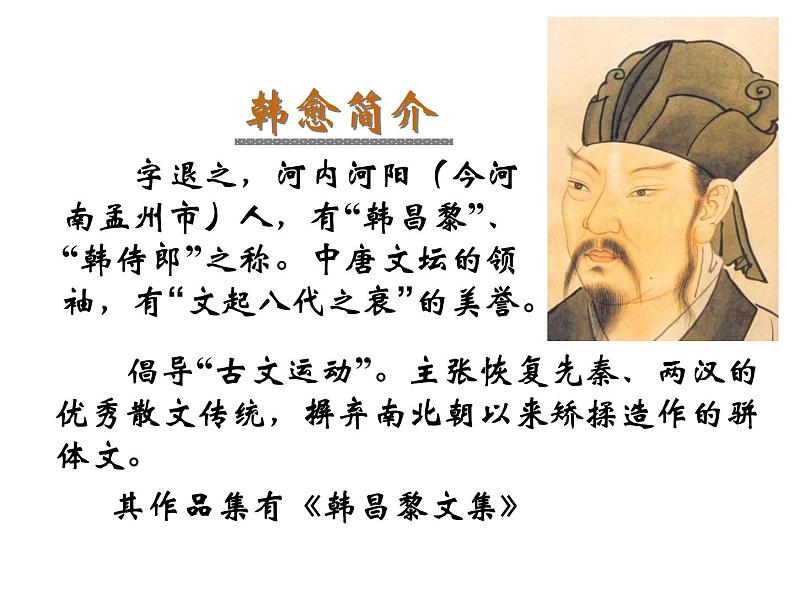 韩愈简介
字退之，河内河阳（今河
南孟州市）人，有“韩昌黎”、
“韩侍郎”之称。中唐文坛的领
袖，有“文起八代之衰”的美誉。
倡导“古文运动”。主张恢复先秦、两汉的
优秀散文传统，摒弃南北朝以来矫揉造作的骈
体文。
其作品集有《韩昌黎文集》